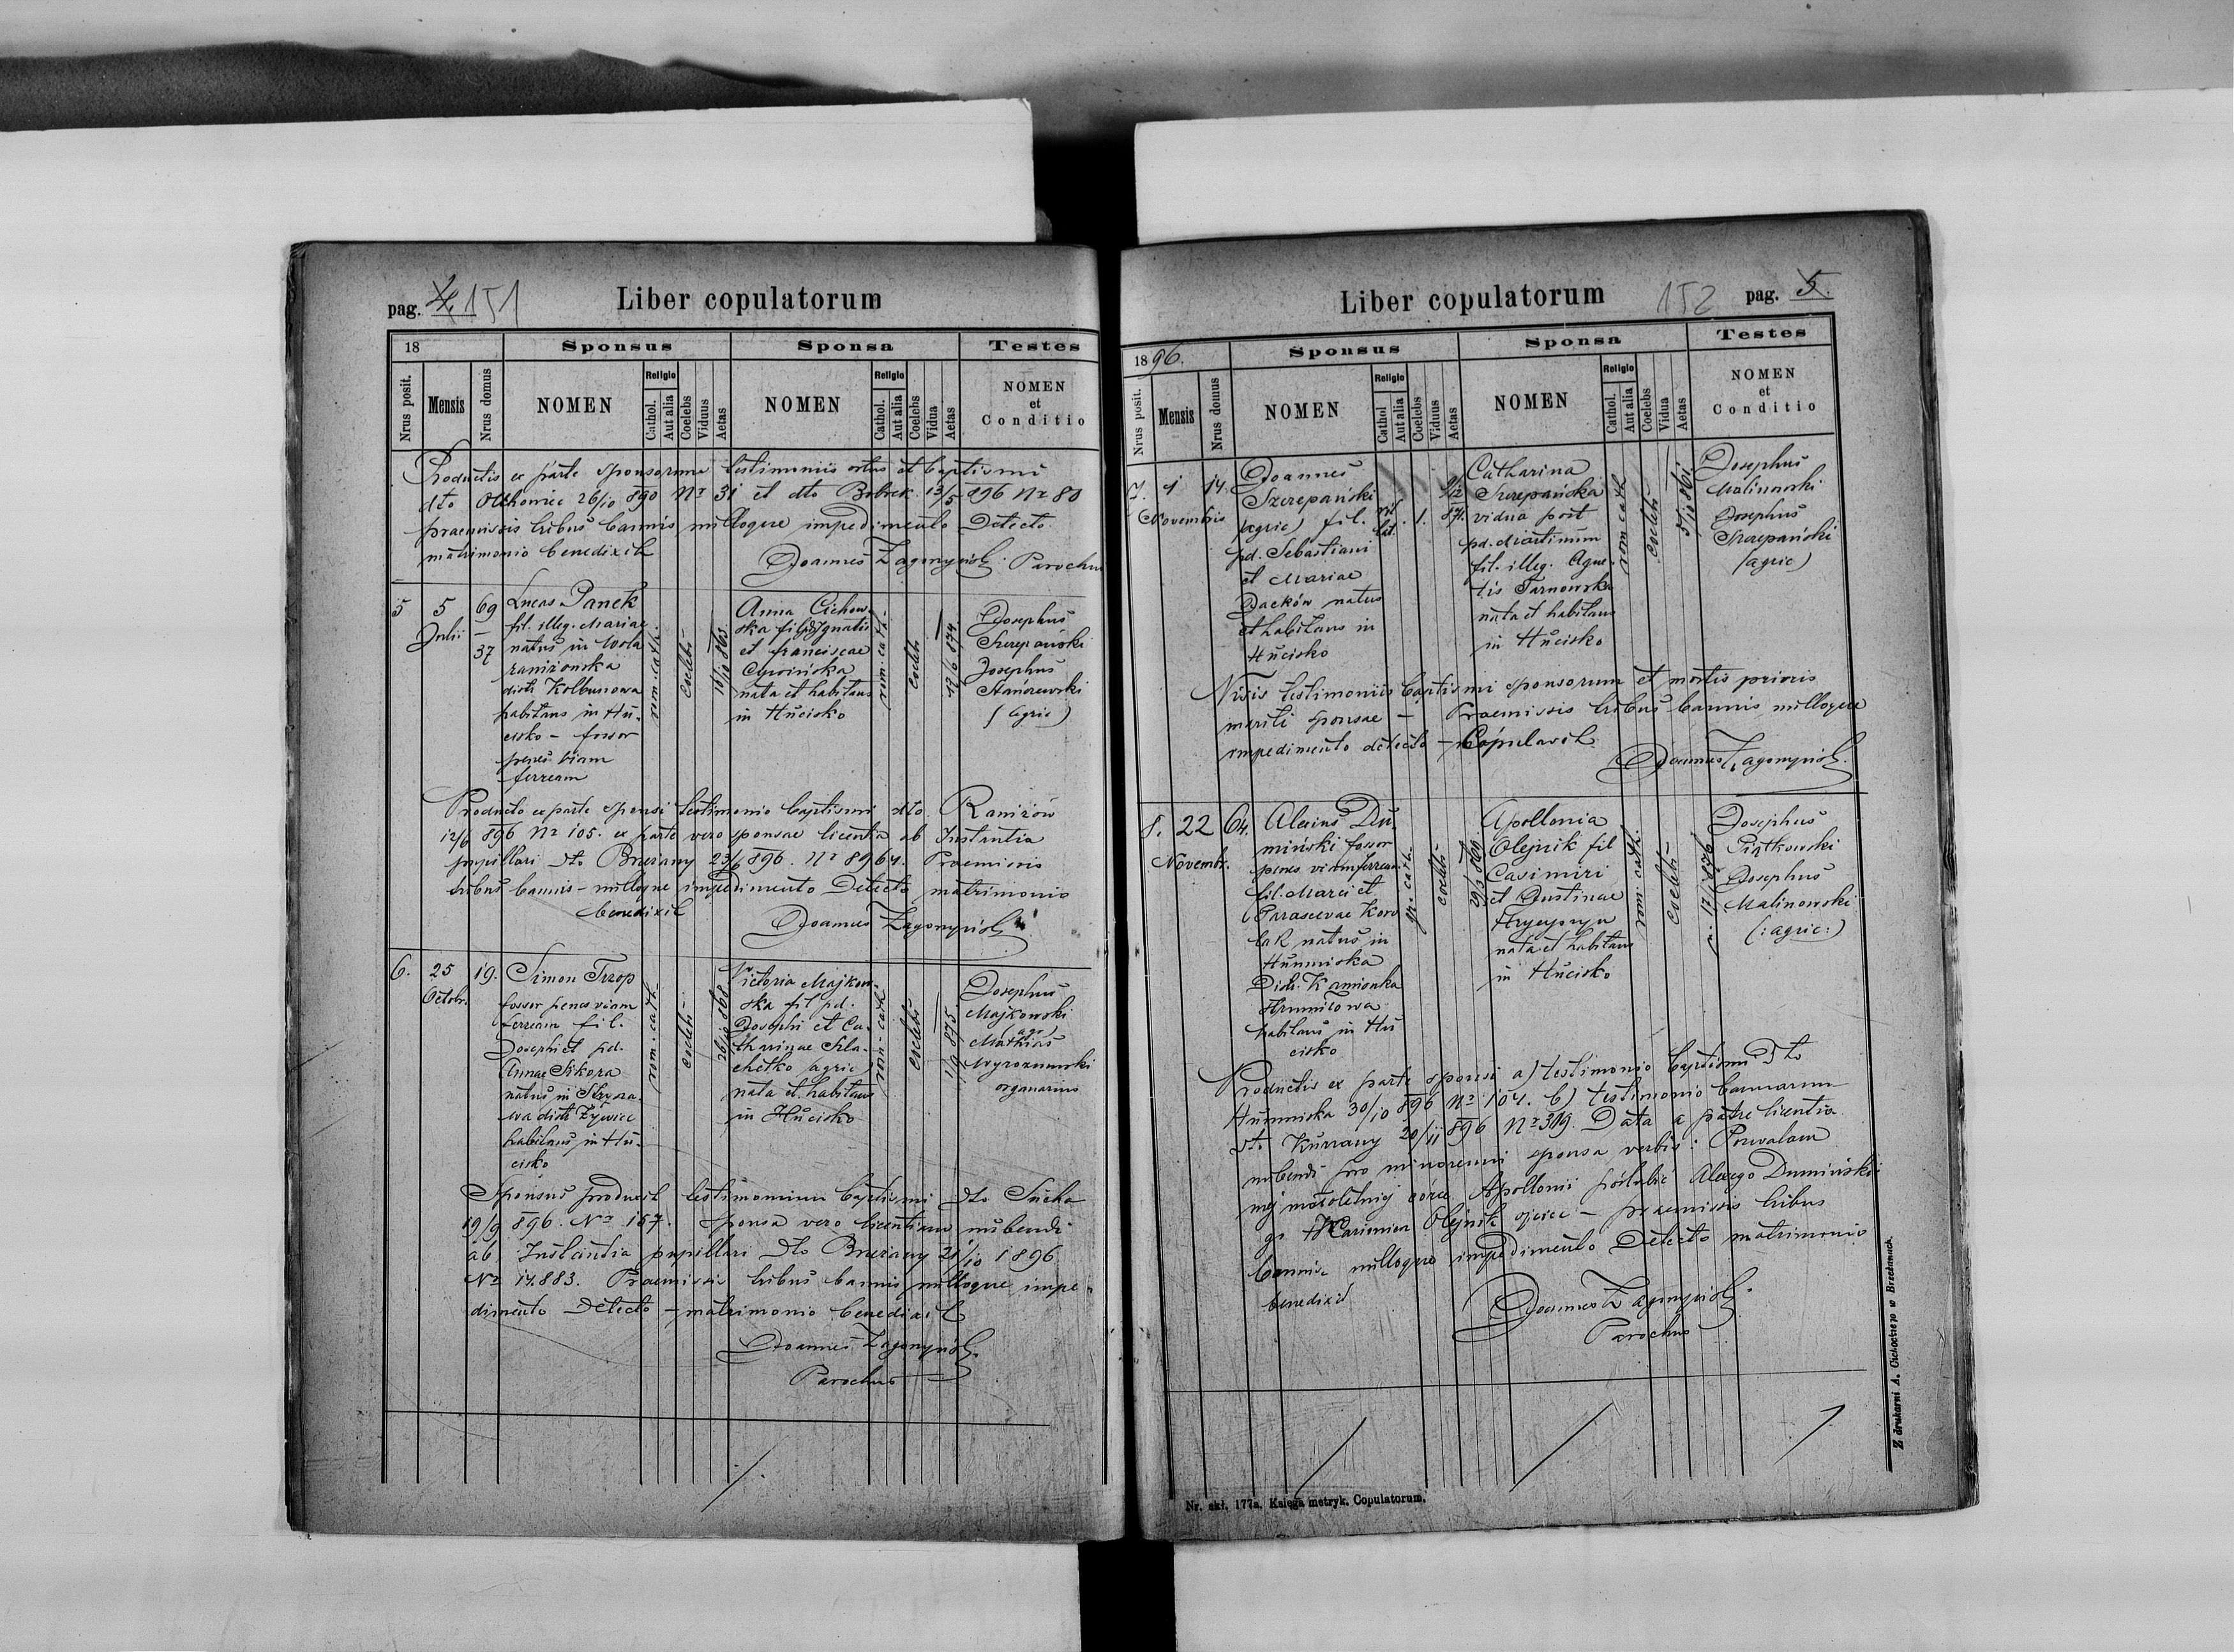 pag. 4. 151
Liber copulatorum
18
Sponsus
Sponsa
Testes
Nrus posit.
Mensis
Nrus domus
NOMEN
Religio
Cathol.
Aut alia
Coelebs
Viduus
Aetas
NOMEN
Religio
Cathol.
Aut alia
Coelebs
Vidua
Aetas
NOMEN
et
Conditio
Productis ex parte sponsorum testimoniis ortus et baptismi
dto 26/10 890 Nr 31 et dto Bobrek 13/5 896 Nr 80
praemissis tribus bannis nulloque impedimento detecto
matrimonio benedixit
Joannes Parochus
5
5
Julii
69
–
37
Lucas Panek
fil. illeg. Mariae
natus in Wola
raniżowska
distr Kolbuszowa
habitans in Hu-
cisko – fossor
penes viam
ferream
rom. cath.
coelebs
16/10 865
Anna Cichow-
ska fil pd Ignatii
et Franciscae
nata et habitans
in Hucisko
rom. cath.
coelebs
17/6 874
Josephus
Szczepański
Josephus
(agric)
Producto ex parte sponsi testimonio baptismi dto Raniżów
12/6 896 Nr 105. ex parte vero sponsae licentia ab Instantia
pupillari dto Brzeżany 23/6 896. Nr 8964. Praemissis
tribus bannis – nulloque impedimento detecto matrimonio
benedixit
Joannes
6.
25
Octobr.
19.
Simon Trzop
fossor penes viam
ferream fil.
Josephi et pd.
Annae Sikora
natus in
distr Żywiec
habitans in Hu-
cisko
rom. cath.
coelebs
26/10 868
Victoria Majkow-
ska fil pd.
Josephi et Ca-
tharinae Szla-
chetko agric
nata et habitans
in Hucisko
rom. cath.
coelebs
1/9 875
Josephus
Majkowski
(agr)
Mathias
Wyrozumski
organarius
Sponsus produxit testimonium baptismi dto Sucha
19/9 896. Nr 167. Sponsa vero licentiam nubendi
ab Instantia pupillari dto Brzeżany 21/10 1896
Nr 14.883. Praemissis tribus bannis nulloque impe-
dimento detecto – matrimonio benedixit
Joannes
Parochus
Liber copulatorum
152
pag. 5.
1896.
Sponsus
Sponsa
Testes
Nrus posit.
Mensis
Nrus domus
NOMEN
Religio
Cathol
Aut alia
Coelebs
Viduus
Aetas
NOMEN
Religio
Cathol.
Aut alia
Coelebs
Vidua
Aetas
NOMEN
et
Conditio
7.
1
Novembris
14
Joannes
Szczepański
(agric) fil.
pd. Sebastiani
et Mariae
Dacków natus
et habitans in
Hucisko
rit
lat.
1.
871.
Catharina
Szczepańska
vidua post
pd. Martinum
fil. illeg. Agne-
tis Tarnowska
nata et habitans
in Hucisko
rom cath
coelebs
5/10 861.
Josephus
Malinowski
Josephus
Szczepański
(agric)
Visis testimoniis baptismi sponsorum et mortis prioris
mariti sponsae – Praemissis tribus bannis nulloque
impedimento detecto – Copulavit
Joannes
8.
22
Novembr.
64.
Alexius Du-
miński fossor
penes viam ferream
fil. Marci et
Parascevae Kow
natus in
Humniska
Distr. Kamionka
Strumiłowa
habitans in Hu
cisko
gr. cath.
coelebs
29/3 860.
Apollonia
Olejnik fil
Casimiri
et Justinae
nata et habitans
in Hucisko
rom. cath.
coelebs
876
Josephus
Piątkowski
Josephus
Malinowski
(: agric :)
Productis ex parte sponsi a) testimonio baptismi dto
Humniska 30/10 896 Nr 104. b) testimonio bannorum
dto Kurzany 20/11 896 Nr 319. Data a patre licentia
nubendi pro minorenni sponsa verbis: Pozwalam
mej małoletniej córce Apollonii poślubić Alexego Dumiński-
go Kazimierz Olejnik ojciec – praemissis tribus
bannis nulloque impedimento detecto matrimonio
benedixit
Joannes
Parochus
Nr. skł. 177a. Księga metryk. Copulatorum.
Z drukarni A. Cichockiego w Brzeżanach.